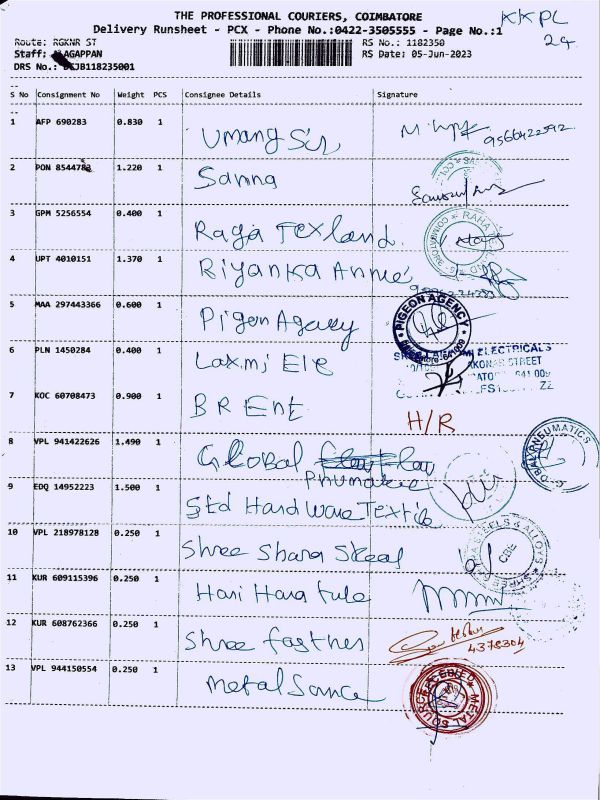 THE PROFESSIONAL COURIERS, COIMBATORE
KKPL
Delivery Runsheet - PCX - Phone No.:0422-3505555 - Page No.:1
24
Route: RGKNR ST
RS No.: 1182350
Staff: ALAGAPPAN
RS Date: 05-Jun-2023
DRS No.: DCJB118235001
S No Consignment No Weight PCS Consignee Details Signature
1 AFP 690283 0.830 1 Umang Sir
9566422592
2 PON 8544782 1.220 1 Sanna
3 GPM 5256554 0.400 1 Raga Texland
4 UPT 4010151 1.370 1 Riyanka Annie
5 MAA 297443366 0.600 1 Pigen Agacy
PIGEON AGENCY
6 PLN 1450284 0.400 1 Laxmi Ele
ELECTRICALS
STREET
641 009
7 KOC 60708473 0.900 1 BR Ent H/R
8 VPL 941422626 1.490 1 Global
Phumatic
PNEUMATICS
9 EDQ 14952223 1.500 1 Std Hardware Textile
10 VPL 218978128 0.250 1 Shree Shara Steel
STEELS & ALLOYS
CBE
11 KUR 609115396 0.250 1 Hari Hara tube
12 KUR 608762366 0.250 1 Shree fastnes
4378304
13 VPL 944150554 0.250 1 Metal Source
RECEIVED
METAL SOURCE